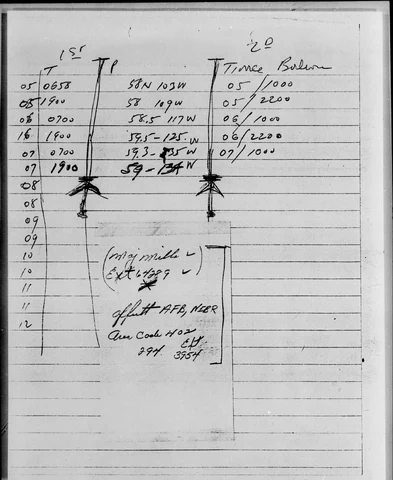 1ST 2D
T P Time
05 0658 58N 103W 05/1000
05 1900 58 109W 05/2200
06 0700 58.5 117W 06/1000
16 1900 59.5-125.W 06/2200
07 0700 59.3-135W 07/1000
07 1900 59-134W
08
08
09
09
10
(Maj Mills
10
Ext 64289
11
11
Offutt AFB, NEBR
12
Area Code 402
294 Ext.
3954